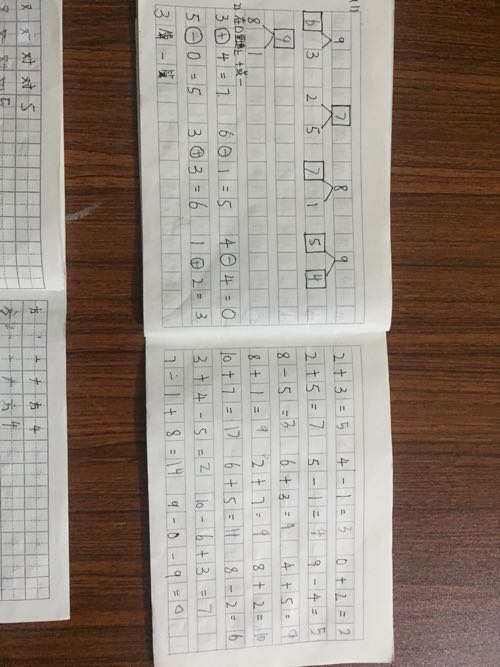 9 7 8 9
6 3 2 5 7 1 5 4
9
8 1
3+4=7 6-1=5 4-4=0
5-0=5 3+3=6 1+2=3
3
2+3=5 4-1=3 0+2=2
2+5=7 5-1=4 9-4=5
8-5=3 6+3=9 4+5=9
8+1=9 2+7=9 8+2=10
10+7=17 6+5=11 8-2=6
3+4-5=2 10-6+3=7
7-1+8=14 9-0-9=0
对 对 5